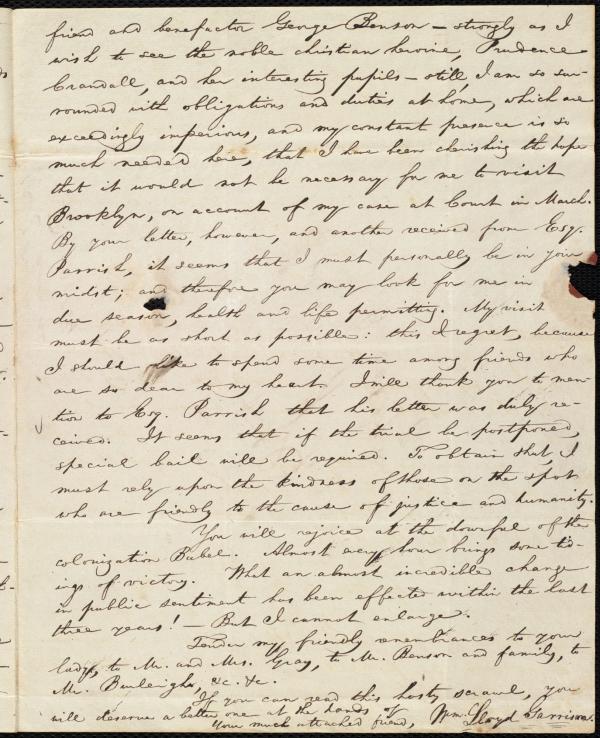 friend and benefactor George Benson – strongly as I
wish to see the noble christian heroine, Prudence
Crandall, and her interesting pupils – still, I am so sur-
rounded with obligations and duties at home, which are
exceedingly imperious, and my constant presence is so
much needed here, that I have been cherishing the hope
that it would not be necessary for me to visit
Brooklyn, on account of my case at Court in March.
By your letter, however, and another received from Esq.
Parrish, it seems that I must personally be in your
midst; and therefore you may look for me in
due season, health and life permitting. My visit
must be as short as possible: this I regret, because
I should like to spend some time among friends who
are so dear to my heart. I will thank you to men-
tion to Esq. Parrish that his letter was duly re-
ceived. It seems that if the trial be postponed,
special bail will be required. To obtain that, I
must rely upon the kindness of those on the spot
who are friendly to the cause of justice and humanity.
You will rejoice at the downfal of the
colonization Babel. Almost every hour brings some tid-
ings of victory. What an almost incredible change
in public sentiment has been effected within the last
three years! – But I cannot enlarge.
Tender my friendly remembrances to your
lady, to Mr. and Mrs. Gray, to Mr. Benson and family, to
Mr. Burleigh, &c. &c.
If you can read this hasty scrawl, you
will deserve a better one at the hands of
Your much attached friend, Wm. Lloyd Garrison.